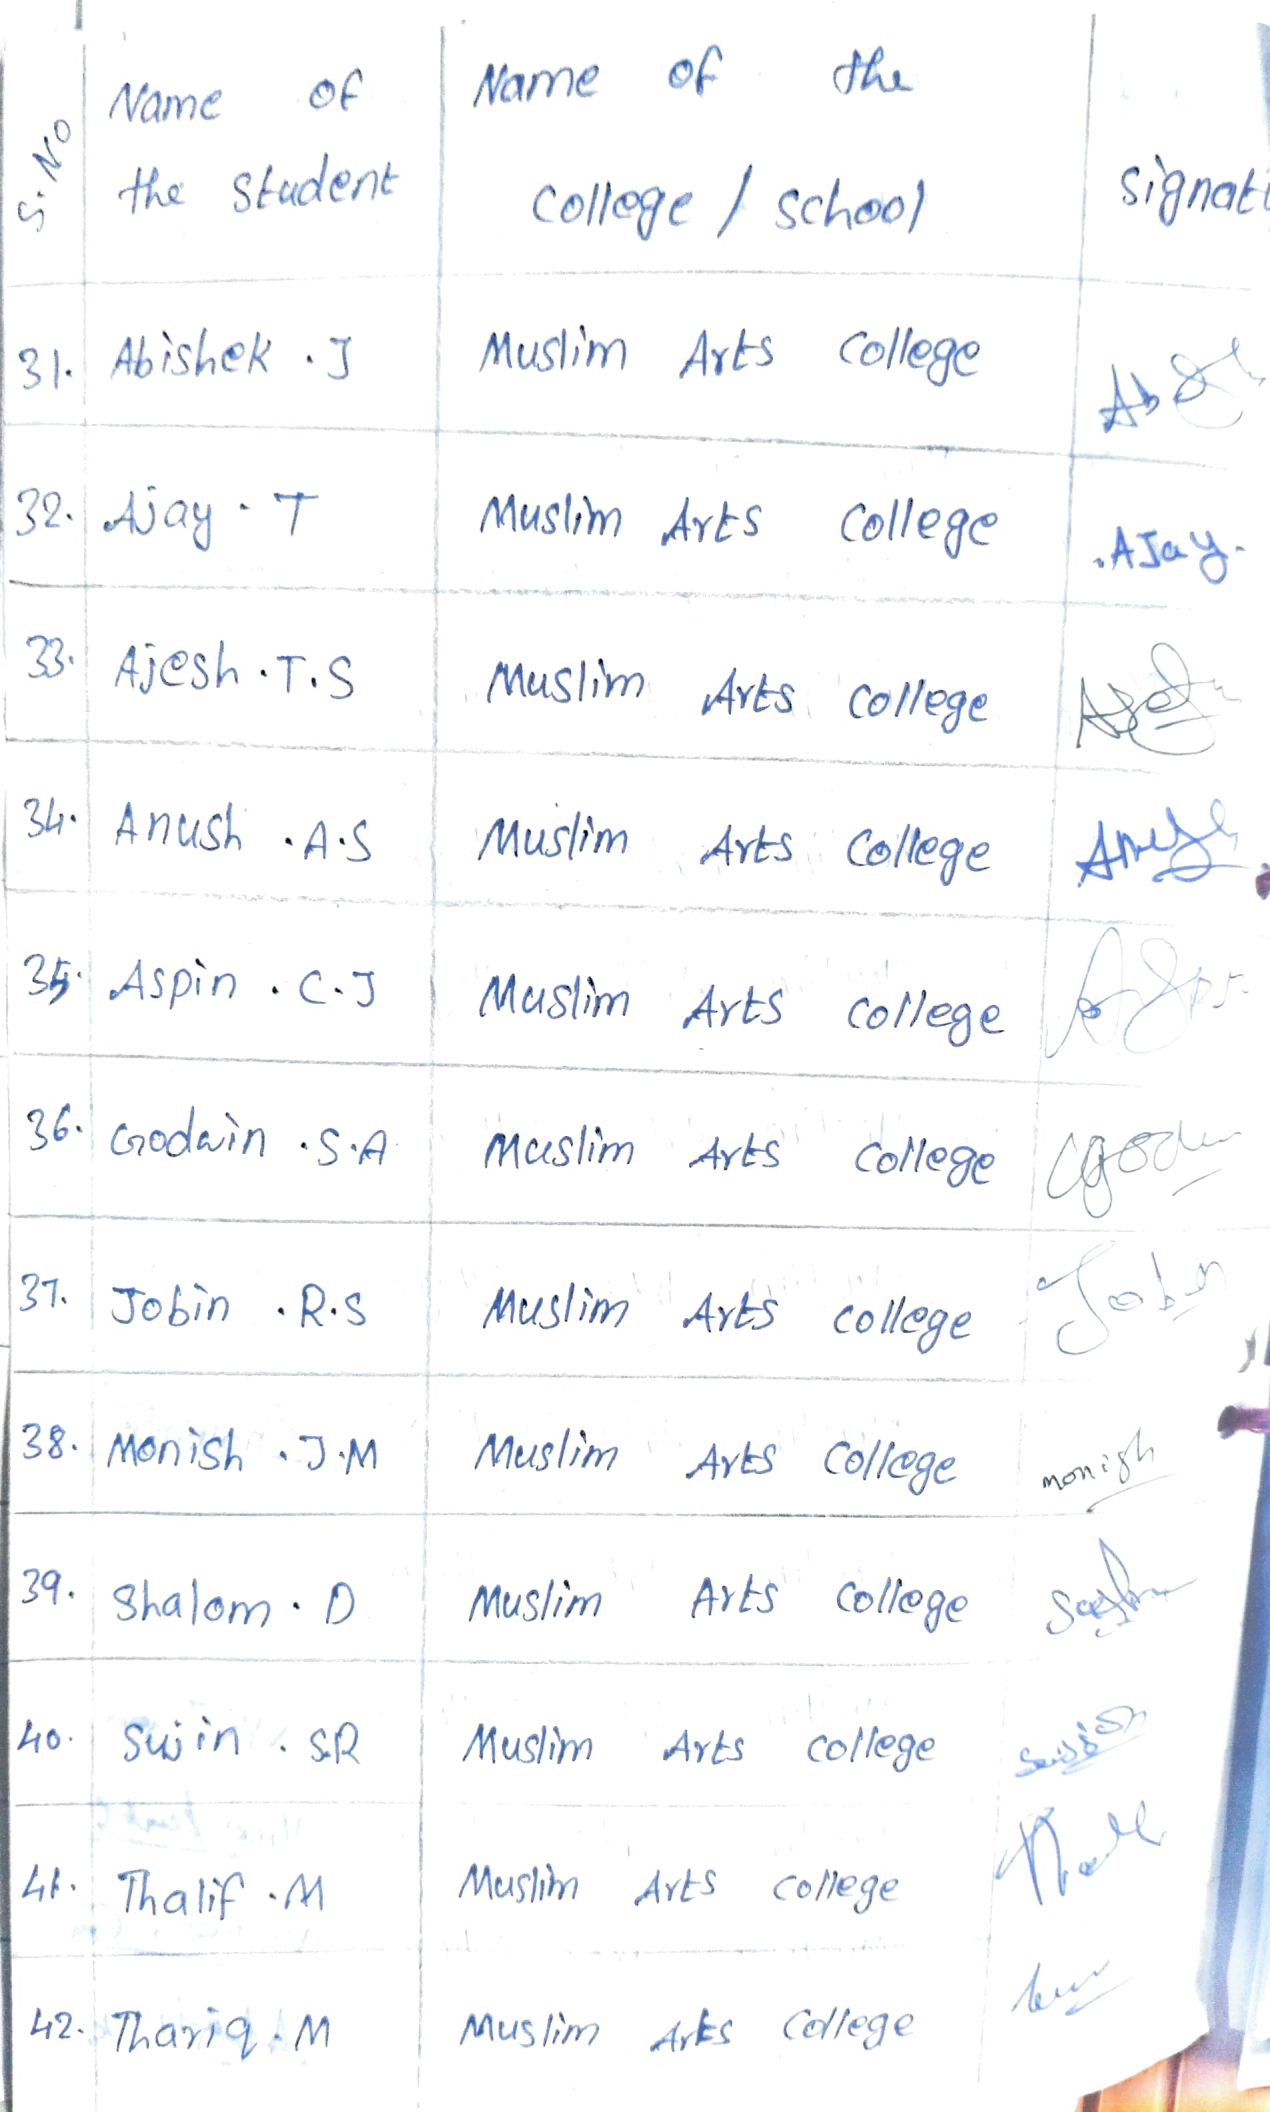 S.No
Name of the student
Name of the College / School
Signat
31. Abishek . J Muslim Arts College
32. Ajay . T Muslim Arts College .AJay.
33. Ajesh . T.S Muslim Arts College
34. Anush . A.S Muslim Arts College
35. Aspin . C.J Muslim Arts College
36. Godwin . S.A Muslim Arts College
37. Jobin . R.S Muslim Arts College Jobin
38. Monish . J.M Muslim Arts College monish
39. Shalom . D Muslim Arts College
40. Sujin . S.R Muslim Arts College
41. Thalif . M Muslim Arts College
42. Thariq . M Muslim Arts College